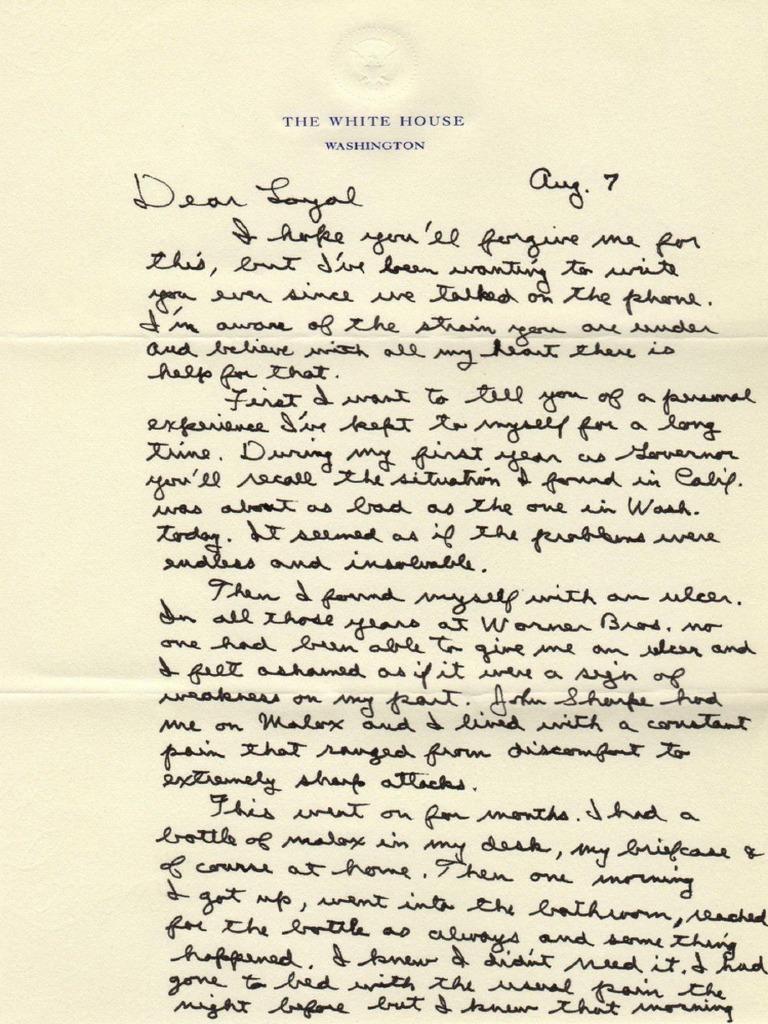 THE WHITE HOUSE
WASHINGTON
Aug. 7
Dear Loyal
I hope you'll forgive me for
this, but I've been wanting to write
you ever since we talked on the phone.
I'm aware of the strain you are under
and believe with all my heart there is
help for that.
First I want to tell you of a personal
experience I've kept to myself for a long
time. During my first year as Governor
you'll recall the situation I found in Calif.
was about as bad as the one in Wash.
today. It seemed as if the problems were
endless and insolvable.
Then I found myself with an ulcer.
In all those years at Warner Bros. no
one had been able to give me an ulcer and
I felt ashamed as if it were a sign of
weakness on my part. John Sharpe had
me on Malox and I lived with a constant
pain that ranged from discomfort to
extremely sharp attacks.
This went on for months. I had a
bottle of malox in my desk, my briefcase &
of course at home. Then one morning
I got up, went into the bathroom, reached
for the bottle as always and some thing
happened. I knew I didn't need it. I had
gone to bed with the usual pain the
night before but I knew that morning